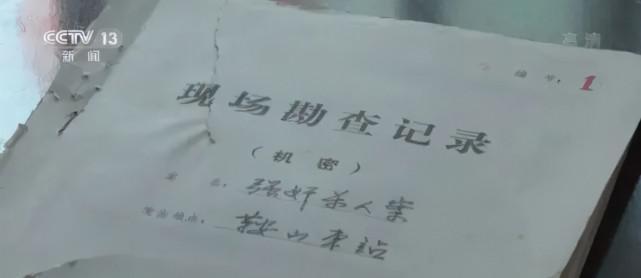 CCTV 13
新闻
高清
编号：1
现场勘查记录
（机密）
强奸杀人案
发案地点：鞍山站